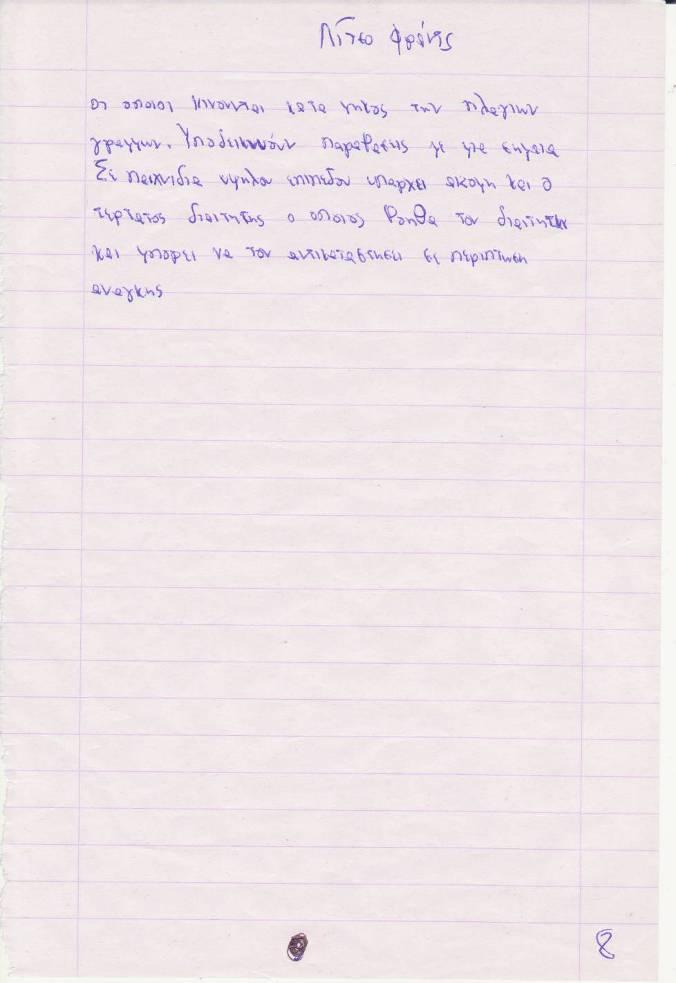 Λίτσο Φράνς
οι οποιοι κινουνται κατα μηκος των πλαγιων
γραμμων. Υποδεικνυουν παραβασεις με μια σημαια
Σε παιχνιδια υψηλου επιπεδου υπαρχει ακομη και ο
τερτατος διαιτητης ο οποιος βοηθα τον διαιτητη
και μπορει να τον αντικαταστησει σε περιπτηση
αναγκης
8